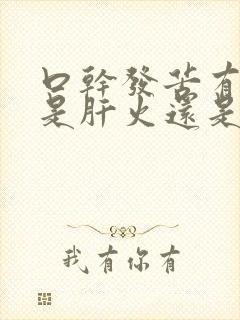 口幹發苦有
是肝火還是
我有你有